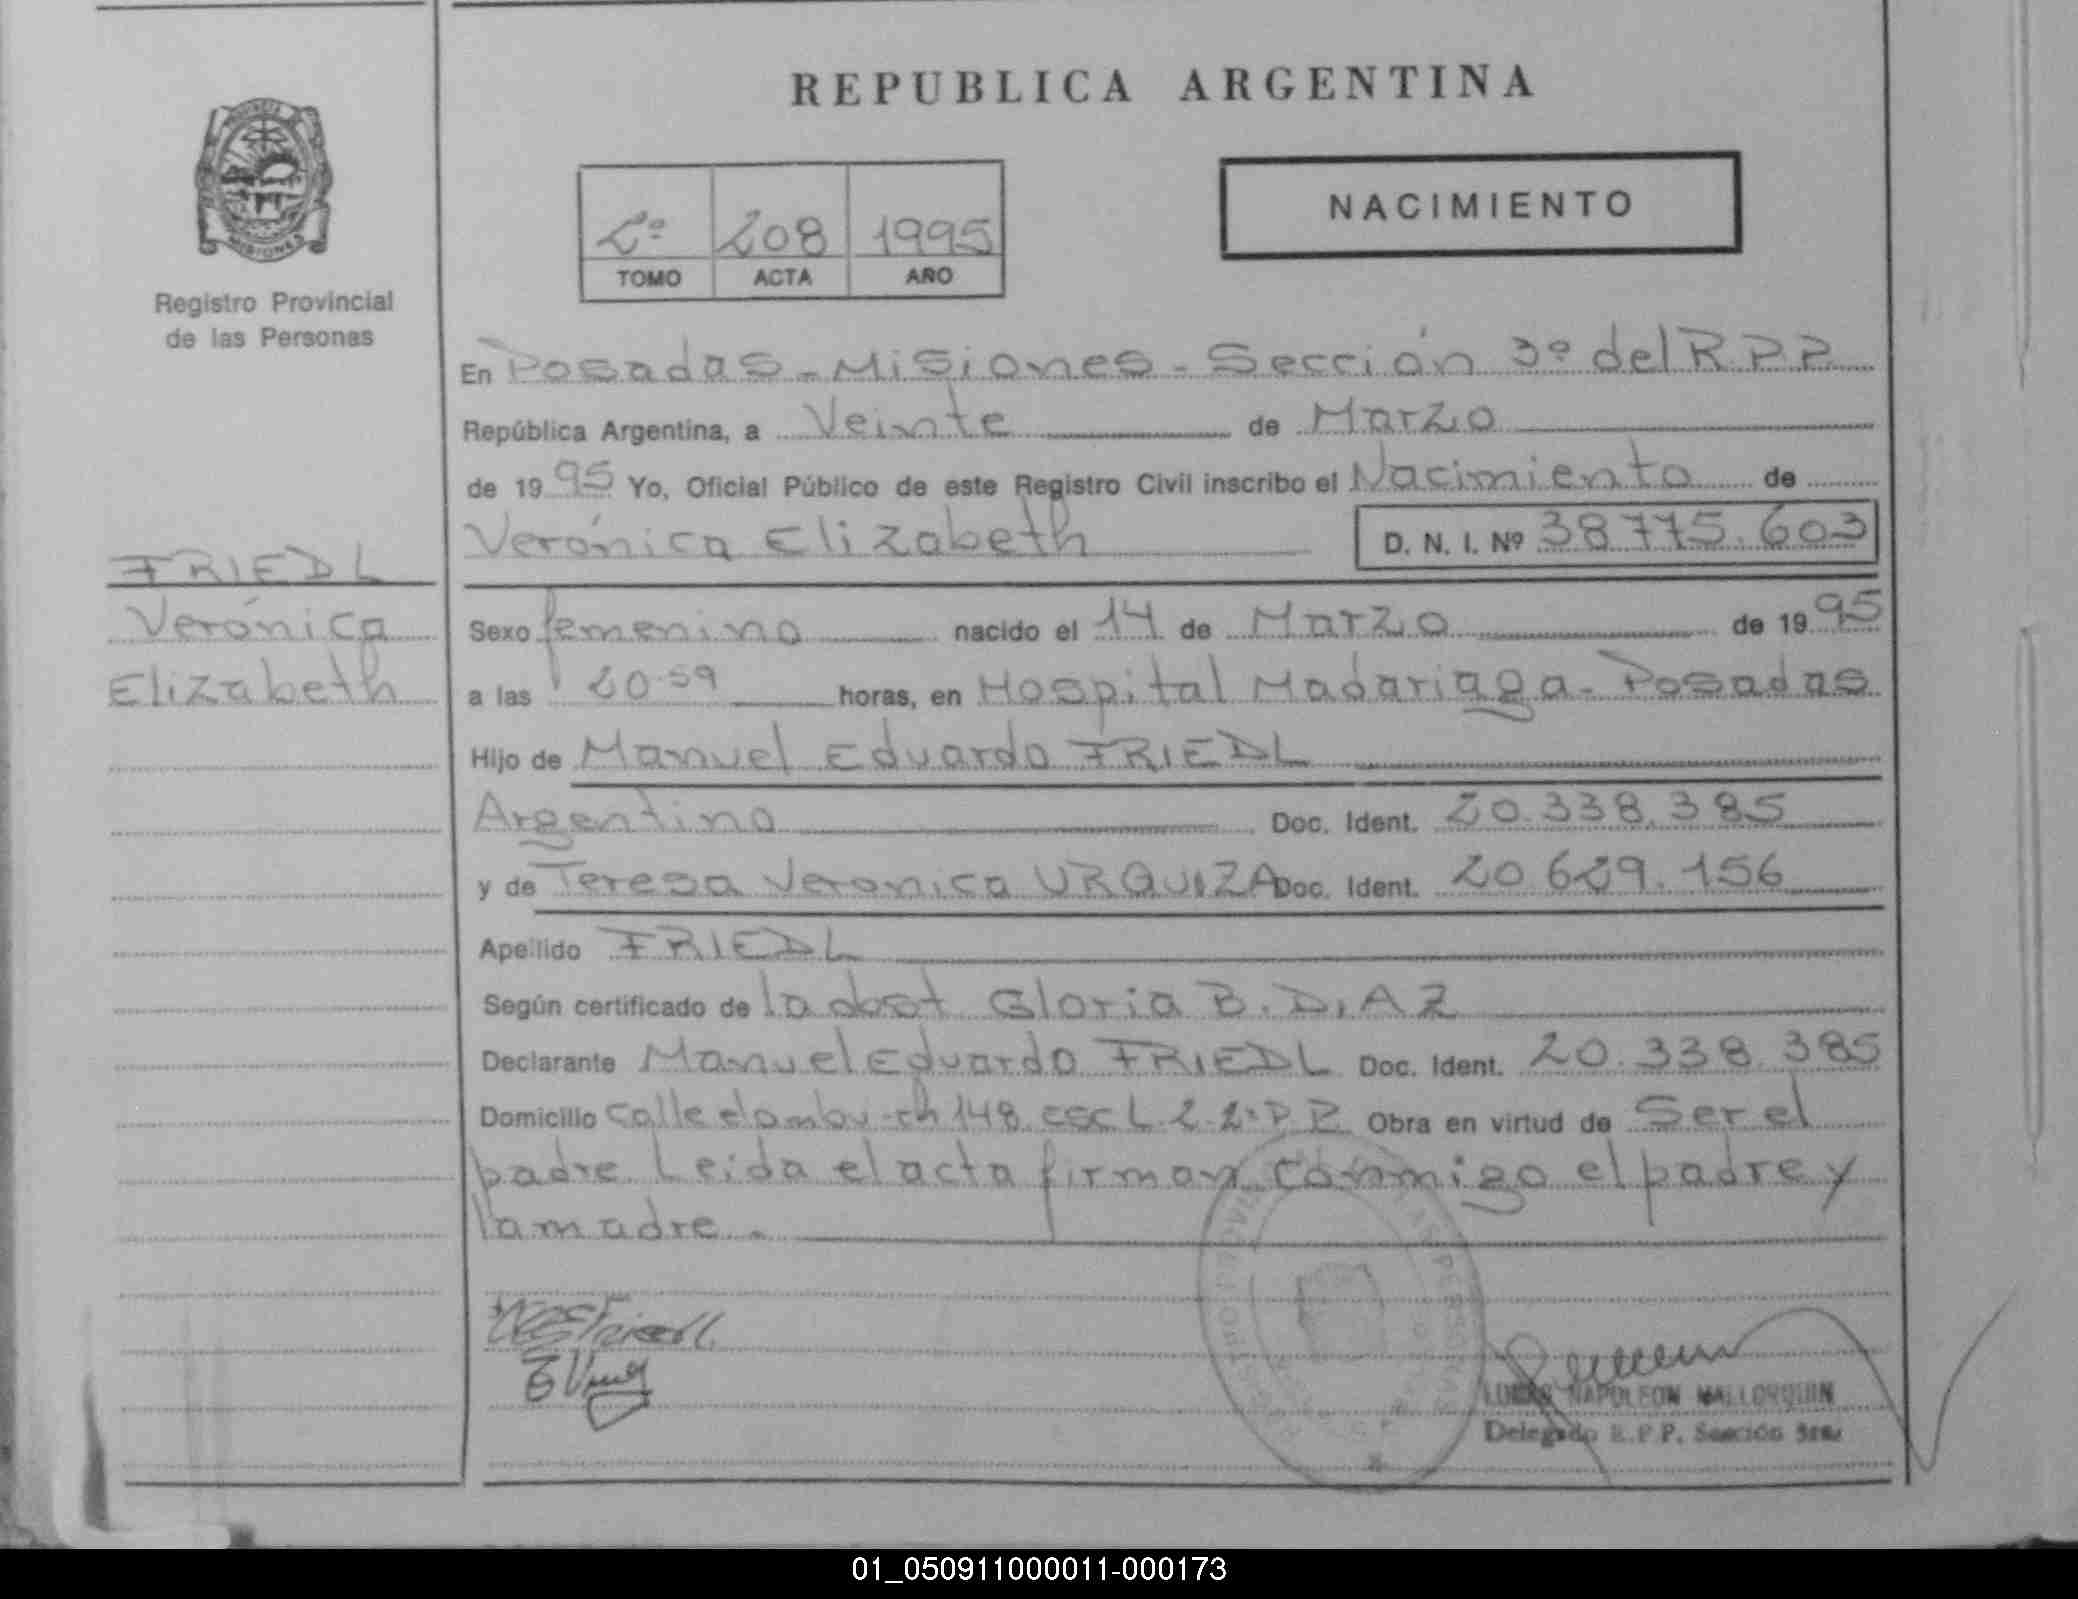 REPUBLICA ARGENTINA
MISIONES
Registro Provincial
de las Personas
NACIMIENTO
2º 208 1995
TOMO ACTA AÑO
En Posadas - Misiones - Sección 3º del R.P.P.
República Argentina, a Veinte de Marzo
de 1995 Yo, Oficial Público de este Registro Civil inscribo el Nacimiento de
Verónica Elizabeth D. N. I. Nº 38.775.603
FRIEDL
Verónica
Elizabeth
Sexo femenino nacido el 14 de Marzo de 1995
a las 20.59 horas, en Hospital Madariaga - Posadas
Hijo de Manuel Eduardo FRIEDL
Argentino Doc. Ident. 20.338.385
y de Teresa Veronica URQUIZA Doc. Ident. 20.629.156
Apellido FRIEDL
Según certificado de la obst Gloria B. DIAZ
Declarante Manuel Eduardo FRIEDL Doc. Ident. 20.338.385
Domicilio calle ch 148 esc L. 2. 2º P. Obra en virtud de Ser el
padre. Leida el acta firman conmigo el padre y
la madre.-
LUCAS NAPOLEON MALLORQUIN
Delegado R.P.P. Sección 3ra.
01_050911000011-000173